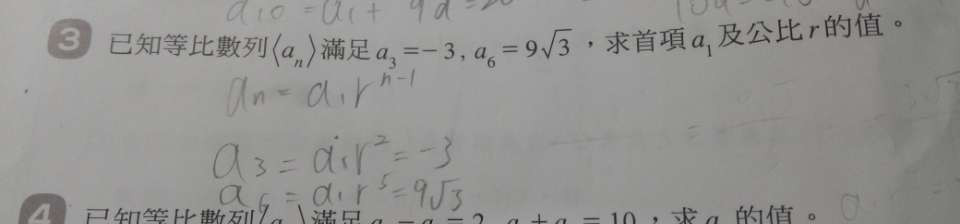 a₁₀ = a₁ + 9d = 20
3 已知等比數列⟨aₙ⟩滿足 a₃ = −3 , a₆ = 9√3 ，求首項 a₁ 及公比 r 的值。
aₙ = a₁rⁿ⁻¹
a₃ = a₁r² = −3
a₆ = a₁r⁵ = 9√3
4 已知等比數列